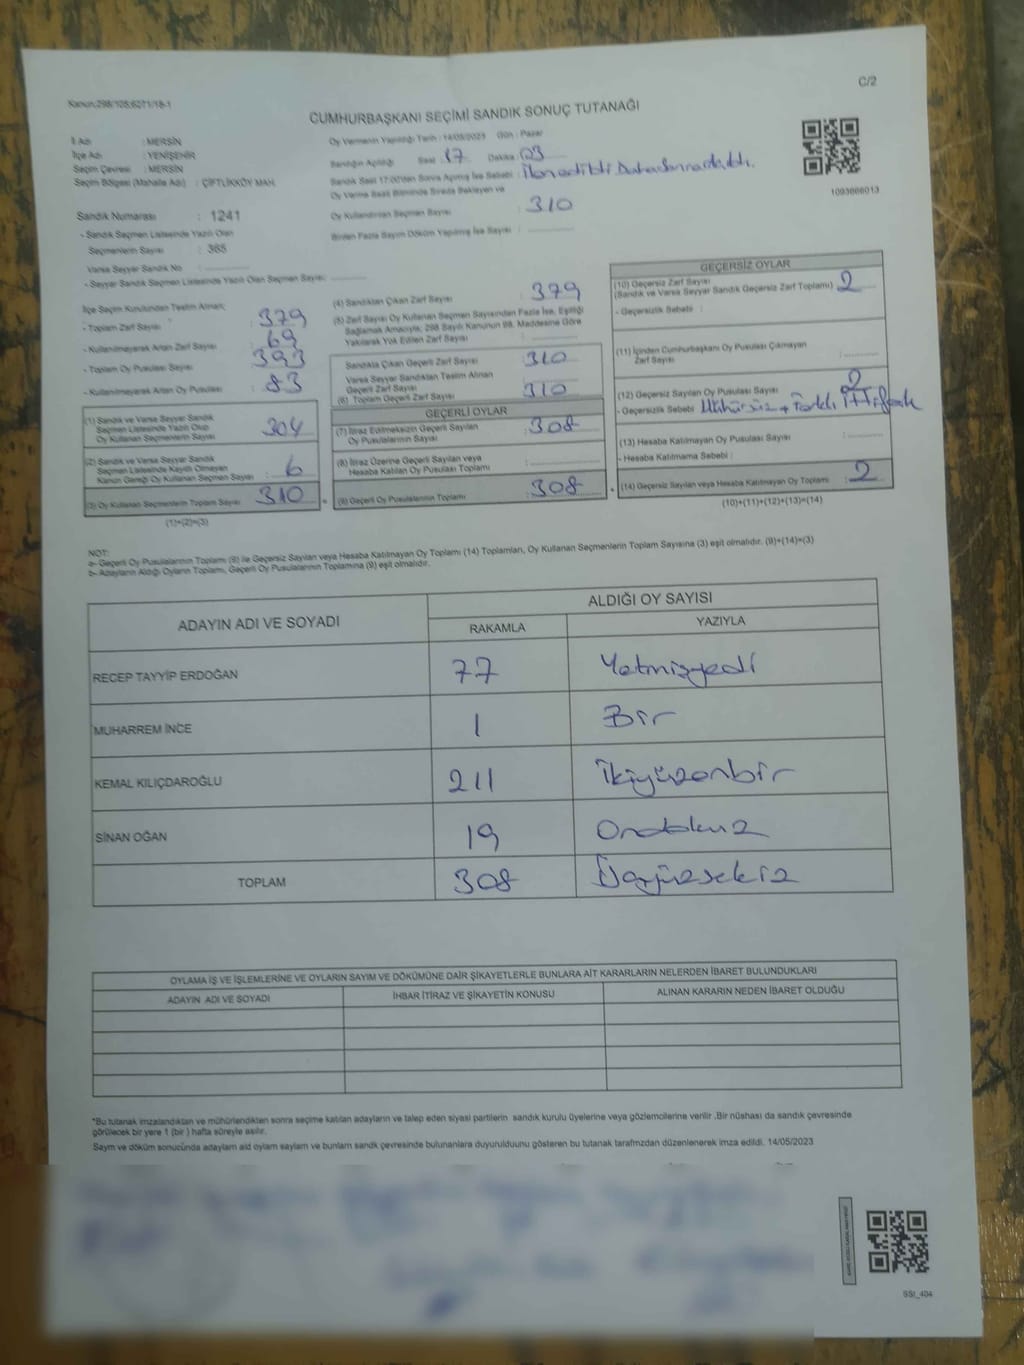 C/2
Kanun:298/105;6271/18-1
CUMHURBAŞKANI SEÇİMİ SANDIK SONUÇ TUTANAĞI
İl Adı : MERSİN
İlçe Adı : YENİŞEHİR
Seçim Çevresi : MERSİN
Seçim Bölgesi (Mahalle Adı) : ÇİFTLİKKÖY MAH.
Sandık Numarası : 1241
- Sandık Seçmen Listesinde Yazılı Olan
Seçmenlerin Sayısı : 365
Varsa Seyyar Sandık No :
- Seyyar Sandık Seçmen Listesinde Yazılı Olan Seçmen Sayısı:
Oy Vermenin Yapıldığı Tarih : 14/05/2023 Gün : Pazar
Sandığın Açıldığı Saat 17 Dakika : 03
Sandık Saat 17:00'den Sonra Açılmış İse Sebebi :
Oy Verme Saati Bitiminde Sırada Bekleyen ve
Oy Kullandırılan Seçmen Sayısı : 310
Birden Fazla Sayım Döküm Yapılmış İse Sayısı :
1093666013
İlçe Seçim Kurulundan Teslim Alınan;
- Toplam Zarf Sayısı : 379
- Kullanılmayarak Artan Zarf Sayısı : 69
- Toplam Oy Pusulası Sayısı : 393
- Kullanılmayarak Artan Oy Pusulası : 83
(1) Sandık ve Varsa Seyyar Sandık
Seçmen Listesinde Yazılı Olup
Oy Kullanan Seçmenlerin Sayısı : 304
(2) Sandık ve Varsa Seyyar Sandık
Seçmen Listesinde Kayıtlı Olmayan
Kanun Gereği Oy Kullanan Seçmen Sayısı : 6
(3) Oy Kullanan Seçmenlerin Toplam Sayısı : 310
(1)+(2)=(3)
(4) Sandıktan Çıkan Zarf Sayısı : 379
(5) Zarf Sayısı Oy Kullanan Seçmen Sayısından Fazla İse, Eşitliği
Sağlamak Amacıyla; 298 Sayılı Kanunun 98. Maddesine Göre
Yakılarak Yok Edilen Zarf Sayısı :
Sandıkta Çıkan Geçerli Zarf Sayısı : 310
Varsa Seyyar Sandıktan Teslim Alınan
Geçerli Zarf Sayısı :
(6) Toplam Geçerli Zarf Sayısı : 310
GEÇERLİ OYLAR
(7) İtiraz Edilmeksizin Geçerli Sayılan
Oy Pusulalarının Sayısı : 308
(8) İtiraz Üzerine Geçerli Sayılan veya
Hesaba Katılan Oy Pusulası Toplamı :
(9) Geçerli Oy Pusulalarının Toplamı : 308
GEÇERSİZ OYLAR
(10) Geçersiz Zarf Sayısı : 2
(Sandık ve Varsa Seyyar Sandık Geçersiz Zarf Toplamı)
- Geçersizlik Sebebi :
(11) İçinden Cumhurbaşkanı Oy Pusulası Çıkmayan
Zarf Sayısı :
(12) Geçersiz Sayılan Oy Pusulası Sayısı : 2
- Geçersizlik Sebebi : Mühürsüz + Farklı İttifak
(13) Hesaba Katılmayan Oy Pusulası Sayısı :
- Hesaba Katılmama Sebebi :
(14) Geçersiz Sayılan veya Hesaba Katılmayan Oy Toplamı : 2
(10)+(11)+(12)+(13)=(14)
NOT:
a- Geçerli Oy Pusulalarının Toplamı (9) ile Geçersiz Sayılan veya Hesaba Katılmayan Oy Toplamı (14) Toplamları, Oy Kullanan Seçmenlerin Toplam Sayısına (3) eşit olmalıdır. (9)+(14)=(3)
b- Adayların Aldığı Oyların Toplamı, Geçerli Oy Pusulalarının Toplamına (9) eşit olmalıdır.
ADAYIN ADI VE SOYADI
ALDIĞI OY SAYISI
RAKAMLA YAZIYLA
RECEP TAYYİP ERDOĞAN 77 Yetmişyedi
MUHARREM İNCE 1 Bir
KEMAL KILIÇDAROĞLU 211 İkiyüzonbir
SİNAN OĞAN 19 Ondokuz
TOPLAM 308 Üçyüzsekiz
OYLAMA İŞ VE İŞLEMLERİNE VE OYLARIN SAYIM VE DÖKÜMÜNE DAİR ŞİKAYETLERLE BUNLARA AİT KARARLARIN NELERDEN İBARET BULUNDUKLARI
ADAYIN ADI VE SOYADI İHBAR İTİRAZ VE ŞİKAYETİN KONUSU ALINAN KARARIN NEDEN İBARET OLDUĞU
*Bu tutanak imzalandıktan ve mühürlendikten sonra seçime katılan adayların ve talep eden siyasi partilerin sandık kurulu üyelerine veya gözlemcilerine verilir .Bir nüshası da sandık çevresinde
görülecek bir yere 1 (bir ) hafta süreyle asılır.
Sayım ve döküm sonucunda adayların aldığı oyların sayıları ve bunların sandık çevresinde bulunanlara duyurulduğunu gösteren bu tutanak tarafımızdan düzenlenerek imza edildi. 14/05/2023
SSI_404